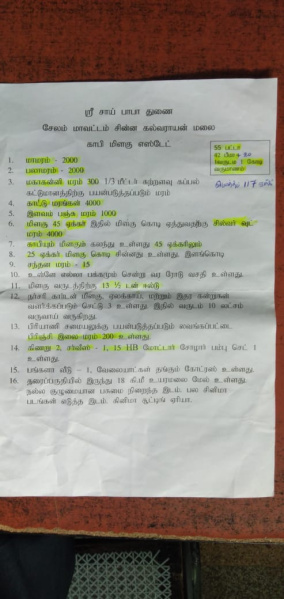 ஸ்ரீ சாய் பாபா துணை
சேலம் மாவட்டம் சின்ன கல்வராயன் மலை
காபி மிளகு எஸ்டேட்
55 பட்டா
1. மாமரம் - 2000
2. பலாமரம் - 2000
3. மகாகல்லி மரம் 300 1/3 மீட்டர் சுற்றளவு கப்பல்
கட்டுமானத்திற்கு பயன்படுத்தப்படும் மரம்
4. காட்டு மரங்கள் 4000
5. இலவம் பஞ்சு மரம் 1000
6. மிளகு 45 ஏக்கர் இதில் மிளகு கொடி ஏத்துவதற்கு சில்வர்
மரம் 4000
7. காபியும் மிளகும் கலந்து உள்ளது 45 ஏக்கரிலும்
8. 25 ஏக்கர் மிளகு கொடி சின்னது உள்ளது. இளங்கொடி
9. சந்தன மரம் - 15
10. உள்ளே எல்லா பக்கமும் சென்று வர ரோடு வசதி உள்ளது.
11. மிளகு வருடத்திற்கு 15 ½ டன்
12. நர்சரி கார்டன் மிளகு, ஏலக்காய், மற்றும் இதர கன்றுகள்
வளர்க்கப்படும் செட்டு 3 உள்ளது. இதில் வருடம் 10 லட்சம்
வருவாய் வருகிறது.
13. பிரியாணி சமையலுக்கு பயன்படுத்தப்படும்
பிரிஞ்சி இலை மரம் 200 உள்ளது.
14. கிணறு 2, சர்வீஸ் - 1, 15 HB மோட்டார் சோழார் பம்பு செட் 1
உள்ளது.
15. பங்களா வீடு - 1, வேலையாட்கள் தங்கும் கோட்ரஸ் உள்ளது.
16. தரைப்பகுதியில் இருந்து 18 கி.மீ உயரமலை மேல் உள்ளது.
நல்ல குளுமையான பசுமை நிறைந்த இடம். பல சினிமா
படங்கள் எடுத்த இடம். சினிமா சூட்டிங் ஏரியா.